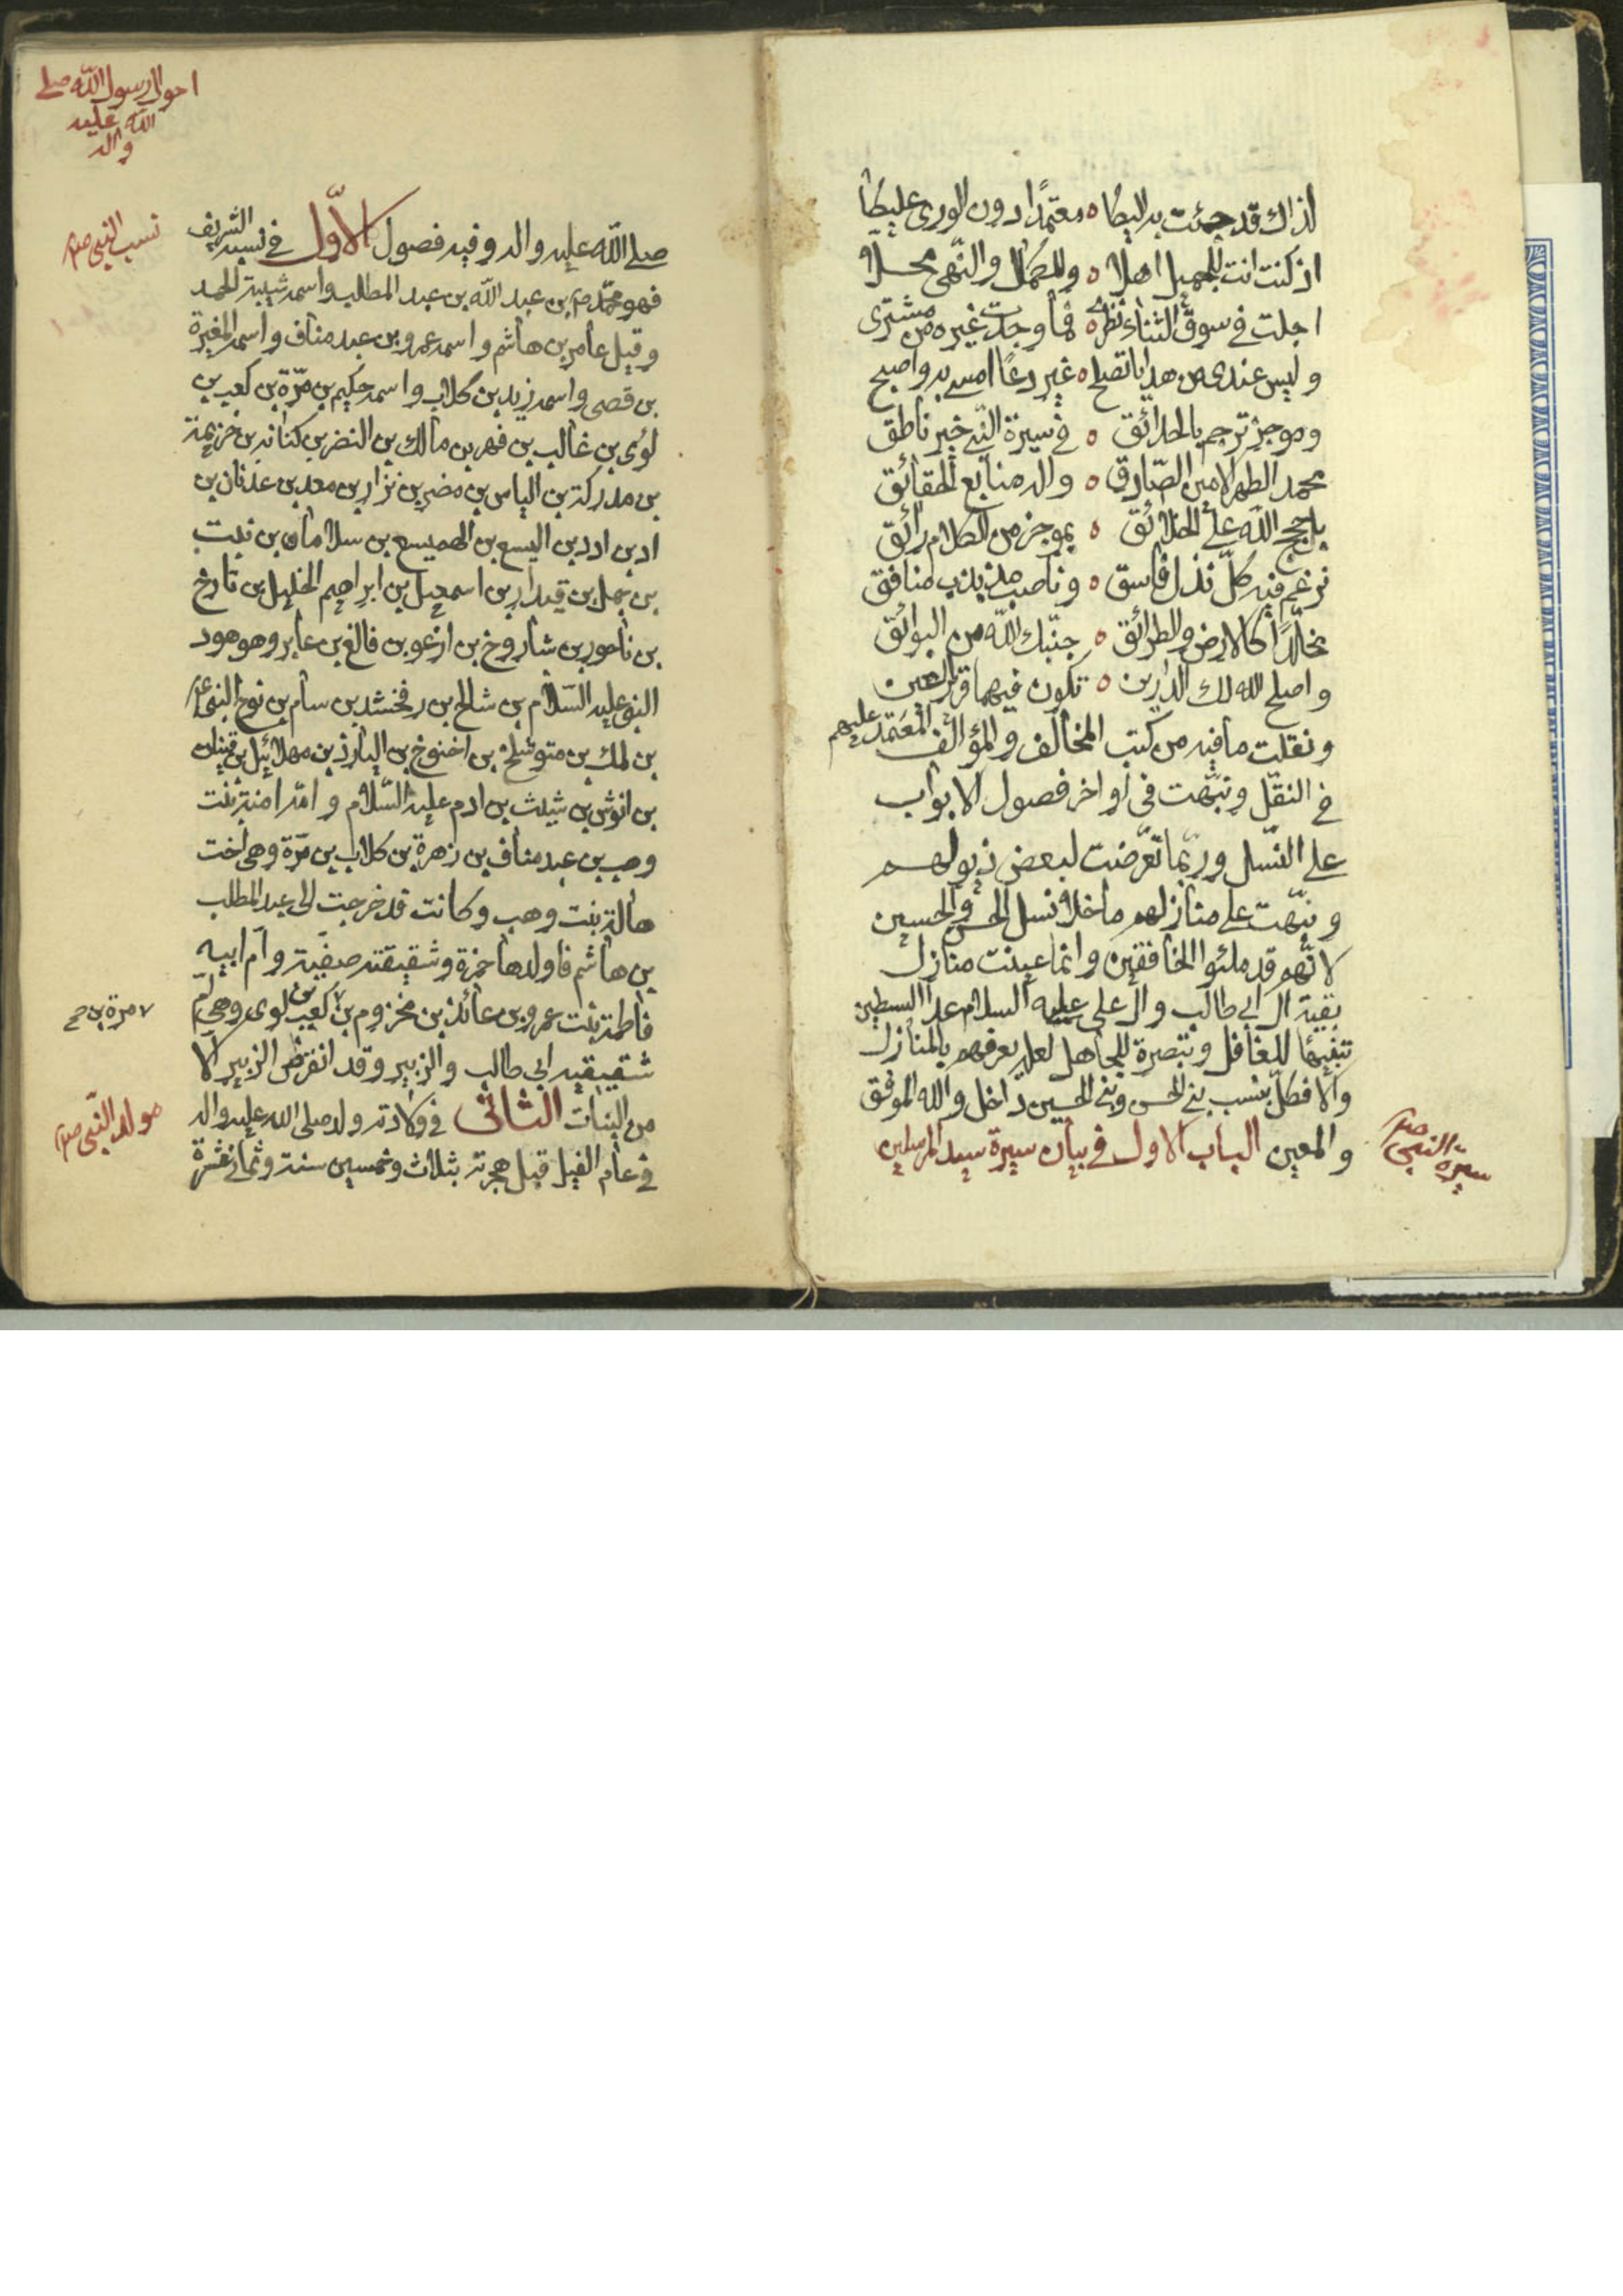 لذاك قد جئت به اليكا ٥ معتمدًا دون الورى عليكا
اذ كنت انت للجميل اهلا ٥ وللكمال والنّهى محلّا
اجلت في سوق الثناء نظرى ٥ فما وجدت غيره من مشترى
وليس عندى من هدايا تصلح ٥ غير دعًا امسى به واصبح
وموجز ترجم بالحدائق ٥ في سيرة النبي خير ناطق
محمد الطهر الامين الصّادق ٥ واله منابع الحقائق
يا حجج الله على الخلائق ٥ بموجز من الكلام رائق
نرغم فيه كلّ نذل فاسق ٥ وناصب مذبذب منافق
مخلّدًا كالارض والطرائق ٥ جنّبك الله من البوائق
واصلح الله لك الدارين ٥ تكون فيهما قرير العين
ونقلت ما فيه من كتب المخالف والمؤالف المعتمد عليهم
في النقل ونبّهت في اواخر فصول الابواب
على النّسل وربّما تعرّضت لبعض ذيولهم
ونبّهت على منازلهم ما خلا نسل الحسن والحسين
لانّهم قد ملئوا الخافقين وانما عينت منازل
بقية ال ابي طالب وال على عليه السلام عدا السبطين
تنبيهًا للغافل وتبصرة للجاهل لعله يعرفهم بالمنازل
والا فكلّ بنسب بني الحسن وبني الحسين داخل والله الموفق
والمعين الباب الاول في بيان سيرة سيد المرسلين
سيرة النبي صلم
احوال رسول الله صلى
الله عليه
واله
صلى الله عليه واله وفيه فصول الاوّل في نسبه الشريف
نسب النبي صلم
فهو محمّد صم بن عبد الله بن عبد المطلب واسمه شيبة الحمد
وقيل عامر بن هاشم واسمه عمرو بن عبد مناف واسمه المغيرة
بن قصى واسمه زيد بن كلاب واسمه حكيم بن مرّة بن كعب بن
لوى بن غالب بن فهر بن مالك بن النضر بن كنانه بن خزيمة
بن مدركة بن الياس بن مضر بن نزار بن معد بن عدنان بن
اد بن ادد بن اليسع بن الهميسع بن سلامان بن نبت
بن حمل بن قيدار بن اسمعيل بن ابراهيم الخليل بن تارخ
بن ناحور بن شاروخ بن ارغو بن فالغ بن عابر وهو هود
النبي عليه السّلام بن شالخ بن رفخشد بن سام بن نوح النبي ع
بن لمك بن متوشلخ بن اخنوخ بن اليارذ بن مهلائيل بن قينان
بن انوش بن شيث بن ادم عليه السّلام وامّه امنة بنت
وهب بن عبد مناف بن زهرة بن كلاب بن مرّة وهى اخت
هالة بنت وهب وكانت قد خرجت الى عبد المطلب
بن هاشم فاولدها حمزة وشقيقته صفية وام ابيه
فاطمة بنت عمرو بن عائذ بن مخزوم بن كعب بن لوى وهى امّ
مرة بن صح
شقيقيه ابي طالب والزبير وقد انقرض الزبير الا
من البنات الثانى في ولادته ولد صلى الله عليه واله
مولد النّبى صلم
في عام الفيل قبل هجرته بثلاث وخمسين سنة وثمانمائة